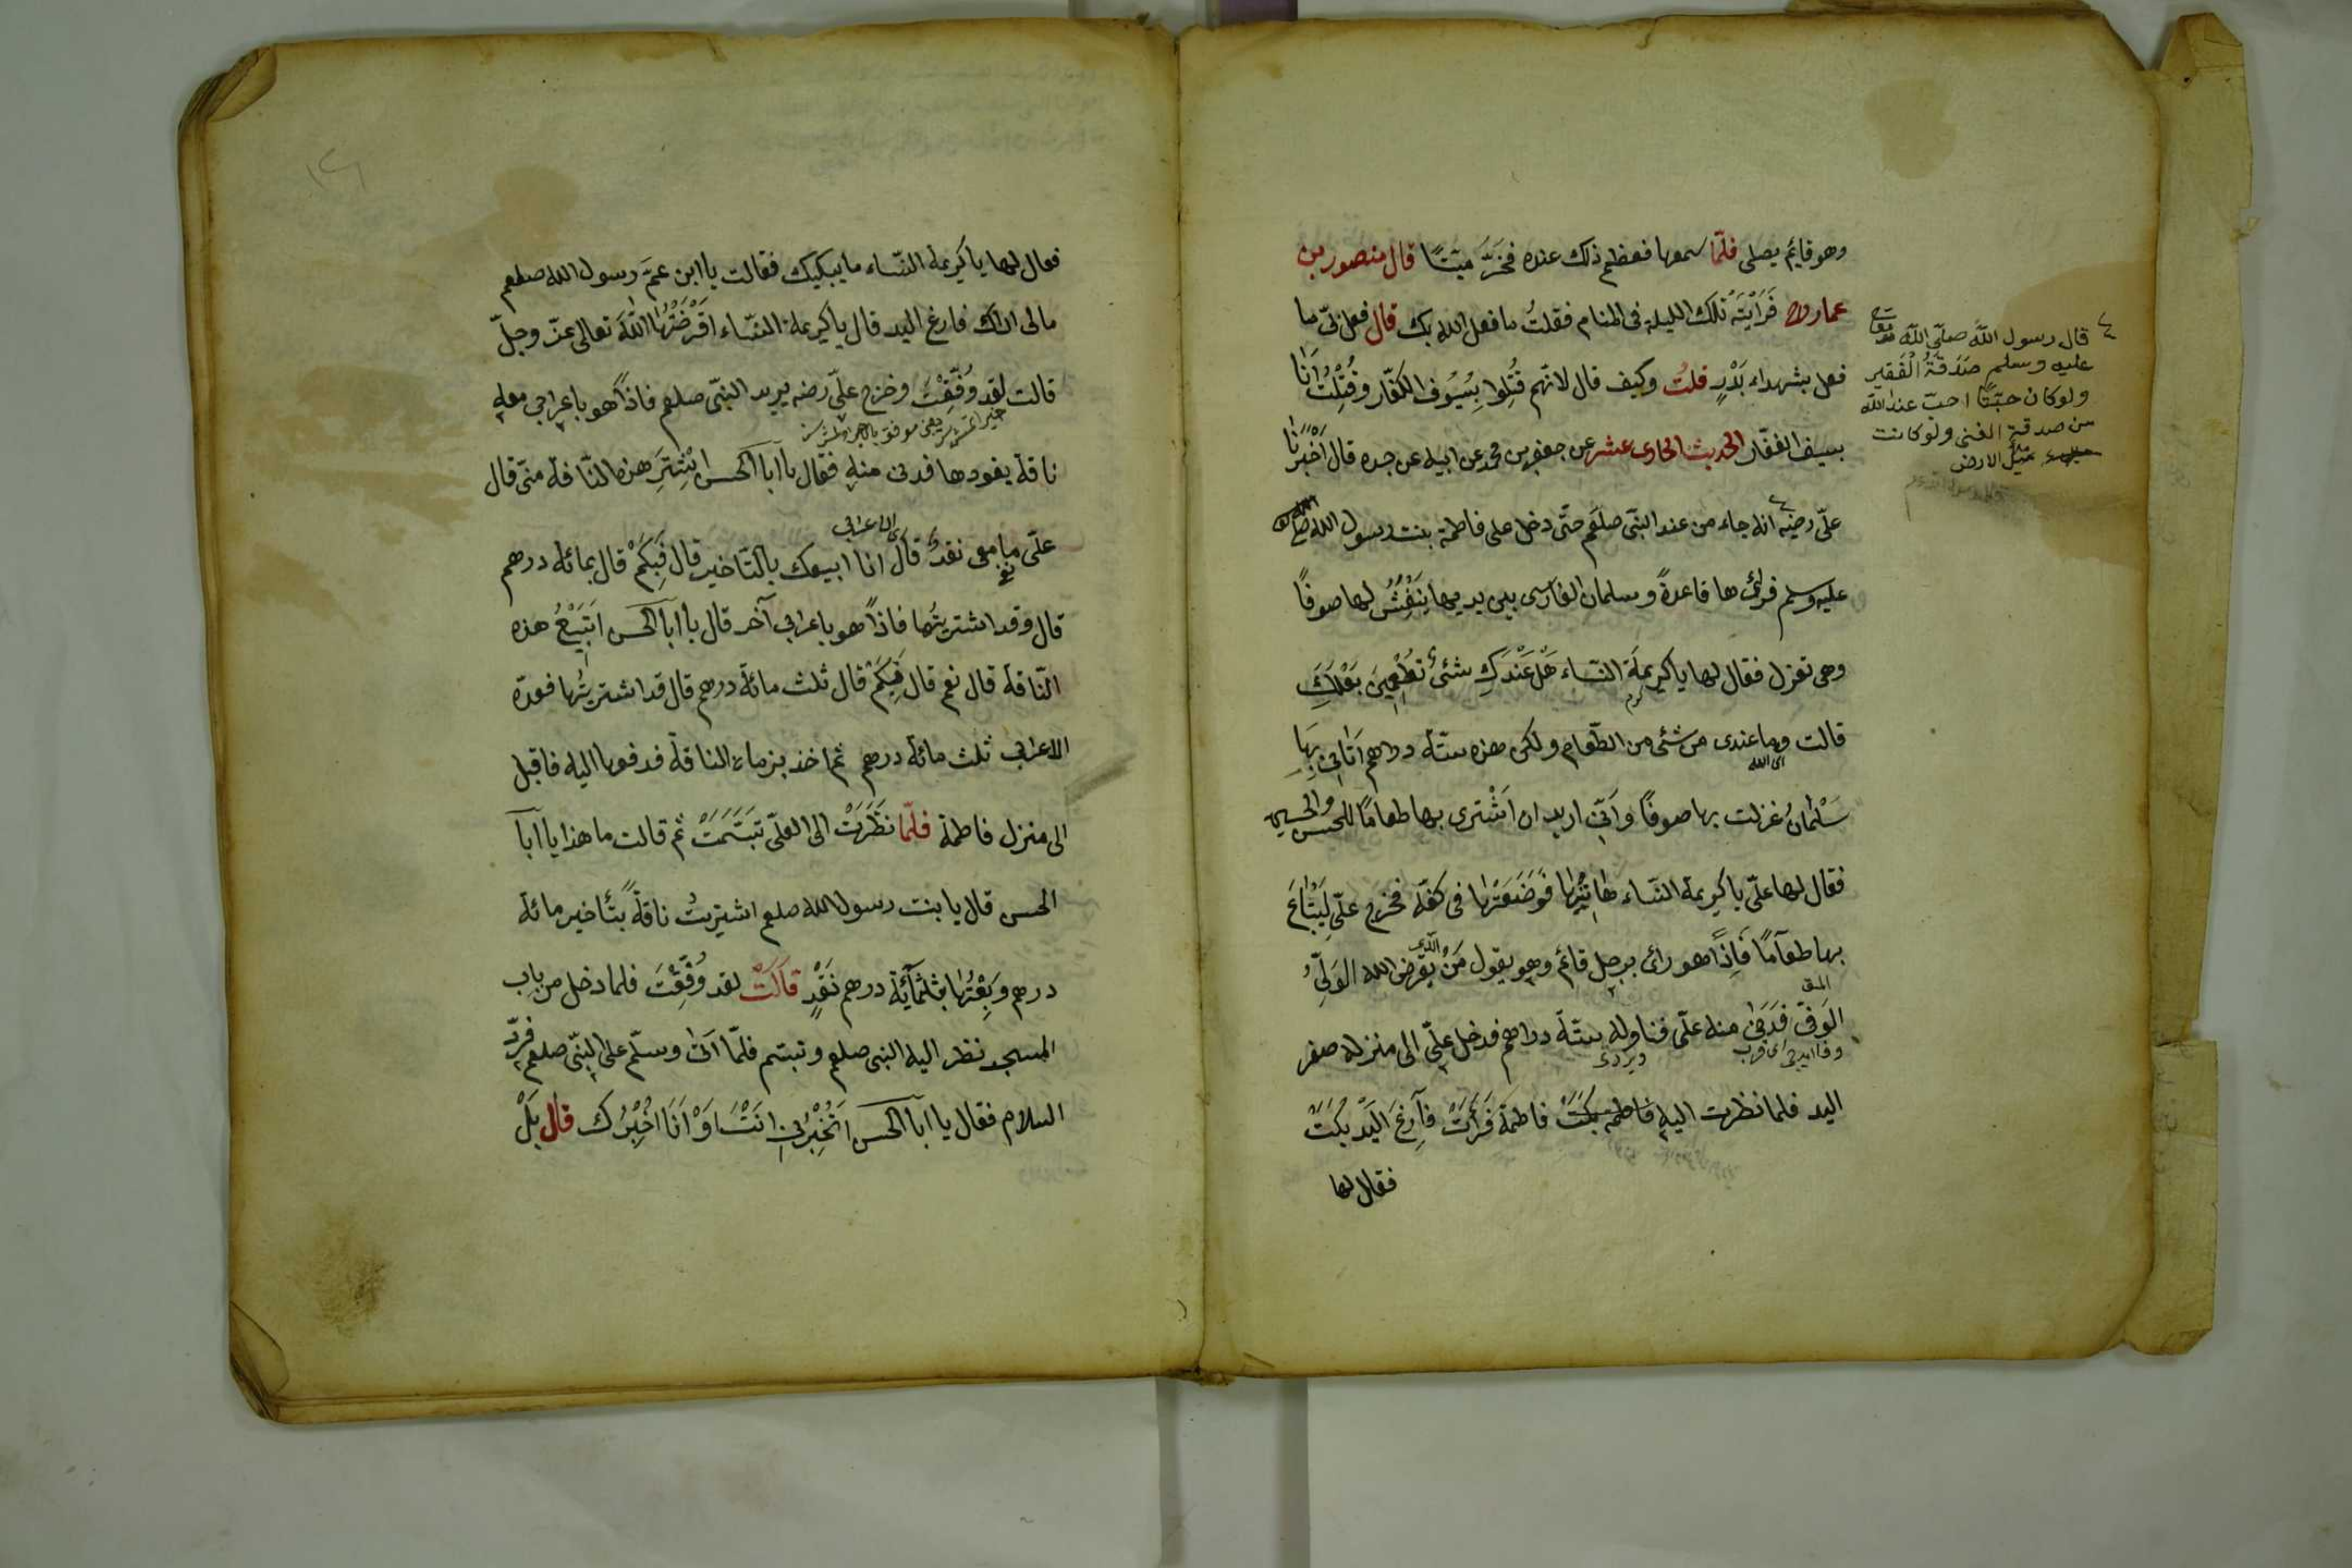 وهو قايم يصلى فلمّا سمعها فعظم ذلك عنده فخرّ ميّتًا قال منصور بن
عمار فَرَأَيْتَهُ تلك الليلة فى المنام فقلتُ ما فعل الله بك قال فعل بى ما
فعل بشهداء بَدْرٍ قلتُ وكيف قال لانّهم قُتِلُوا بِسُيُوف الكفّار وقُتِلْتُ اَنَا
بسيف الغفّار الحديث الحادى عشر عن جعفر بن محمد عن ابيه عن جده قال اَخْبَرَنَا
علىّ رضيه انه جاء من عند النبّى صلعم حتّى دخل على فاطمة بنت رسول الله صلى الله
عليه وسلم فرائ ها قاعدةً وسلمان الفارسى بين يديها يَنْفِشُ لها صوفًا
وهى تغزل فقال لها يا كريمةَ النّساء هَلْ عَنْدَكِ شئىٌ تُطْعِمِينَ بَعْلَكِ
قالت وما عندى من شئى من الطّعام ولكن هذه ستّة دراهم اَتَانِى بِهَا
اى الله
سَلْمَانُ غزلت بها صوفًا وَاَنّى اريد ان اَشْترى بها طعامًا للحسن والحسين
فقال لها علىّ يا كريمة النّساء هَاتِيْهَا فَوَضَعَتْهَا فى كفّه فخرج علىّ لِيَبْتَاعَ
بها طعآمًا فَاِذًا هو رائ برجل قائم وهو يقول مَنْ الّذى يقرض الله الوَلِىّ
الوَفِىّ فَدَنىٰ منه علىّ فناوله ستّة دراهم فدخل علىّ الى منزله صفر
اليد فلما نظرت اليه فاطمه بكت فاطمةَ فَرَأَتْ فَآرِغَ اليَدِ بَكَتْ
فقال لها
قال رسول اللّه صلّى اللّه
عليه وسلم صَدَقَةُ الْفَقِير
ولو كان حبّتًا احبّ عند اللّه
من صدقة الغنى ولو كانت
مثل الارض
فقال لها يا كريمة النّساء ما يبكيك فقالت يا ابن عمّ رسول الله صلعم
مالى اراك فارغ اليد قال يا كريمة النّساء اقْرَضْتُهَا اللّهَ تعالى عزّ وجلّ
قالت لقد وُفِّقْتَ وخرج علىّ رضه يريد النبّى صلعم فاذًا هو باعرابى معه
ناقة يقودها فدنى منه فقال يا ابا الحسن اِشْتَرِ هذه النّاقة منّى قال
الاعرابى
علىّ ما معى نقدٌ قال انا ابيعك بالتّاخير قال فَبِكَمْ قال بمائة درهم
قال وقد اشتريتُها فاذًا هو باعرابى آخر قال يا ابا الحسن اَتَبِيْعُ هذه
النّاقة قال نعم قال فَبِكَمْ قال ثلث مائة درهم قال قد اشتريتُها فعدّه
الاعرابى ثلث مائة درهم ثم اخذ بزمام الناقة فدفعها اليه فاقبل
الى منزل فاطمة فلمّا نَظَرَتْ الى العلىّ تبَسَّمَتْ ثم قالت ما هذا يا ابا
الحسن قال يا بنت رسول الله صلعم اشتريتُ ناقةً بتأخير مائة
درهم وَبِعْتُهَا بثلثمآيَة درهم نَقْدٍ قَالَتْ لقد وُفِّقْتَ فلما دخل من باب
المسجد نظر اليه النبى صلعم وتبسّم فلمّا اتىٰ وسلّم على النبّى صلعم فردّ
السلام فقال يا ابا الحسن اَتُخْبِرُنِى اَنْتَ اَوْ اَنَا اُخْبِرُك قال بَلْ